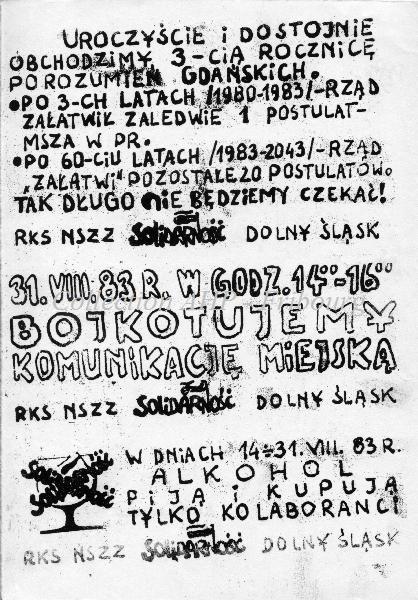 UROCZYŚCIE i DOSTOJNIE
OBCHODZIMY 3-CIĄ ROCZNICĘ
POROZUMIEŃ GDAŃSKICH.
•PO 3-CH LATACH /1980-1983/-RZĄD
ZAŁATWIŁ ZALEDWIE 1 POSTULAT-
MSZA W PR.
•PO 60-CIU LATACH /1983-2043/-RZĄD
„ZAŁATWI" POZOSTAŁE 20 POSTULATÓW.
TAK DŁUGO NIE BĘDZIEMY CZEKAĆ!
RKS NSZZ SOLIDARNOŚĆ DOLNY ŚLĄSK
31.VIII.83 R. W GODZ. 14°°-16°°
BOJKOTUJEMY
KOMUNIKACJĘ MIEJSKĄ
RKS NSZZ SOLIDARNOŚĆ DOLNY ŚLĄSK
W DNIACH 14÷31.VIII.83 R.
ALKOHOL
PIJĄ i KUPUJĄ
TYLKO KOLABORANCI
RKS NSZZ SOLIDARNOŚĆ DOLNY ŚLĄSK